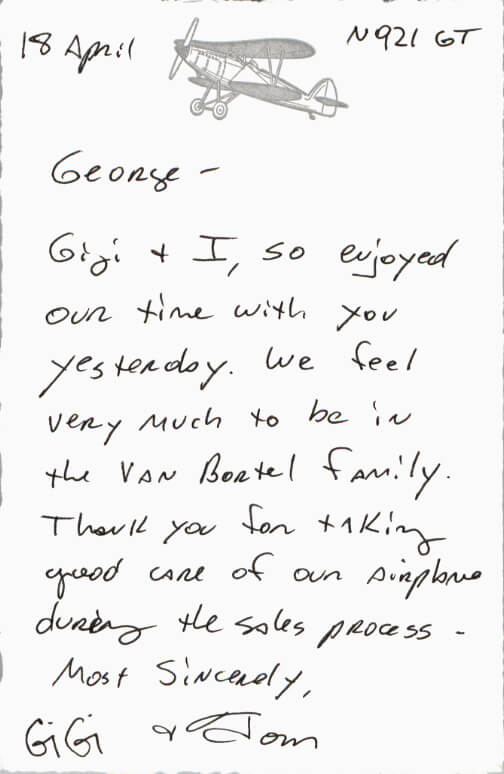 18 April
N921 GT
George -
Gigi + I, so enjoyed
our time with you
yesterday. We feel
very much to be in
the Van Bortel family.
Thank you for taking
good care of our airplane
during the sales process -
Most Sincerely,
GiGi & Tom